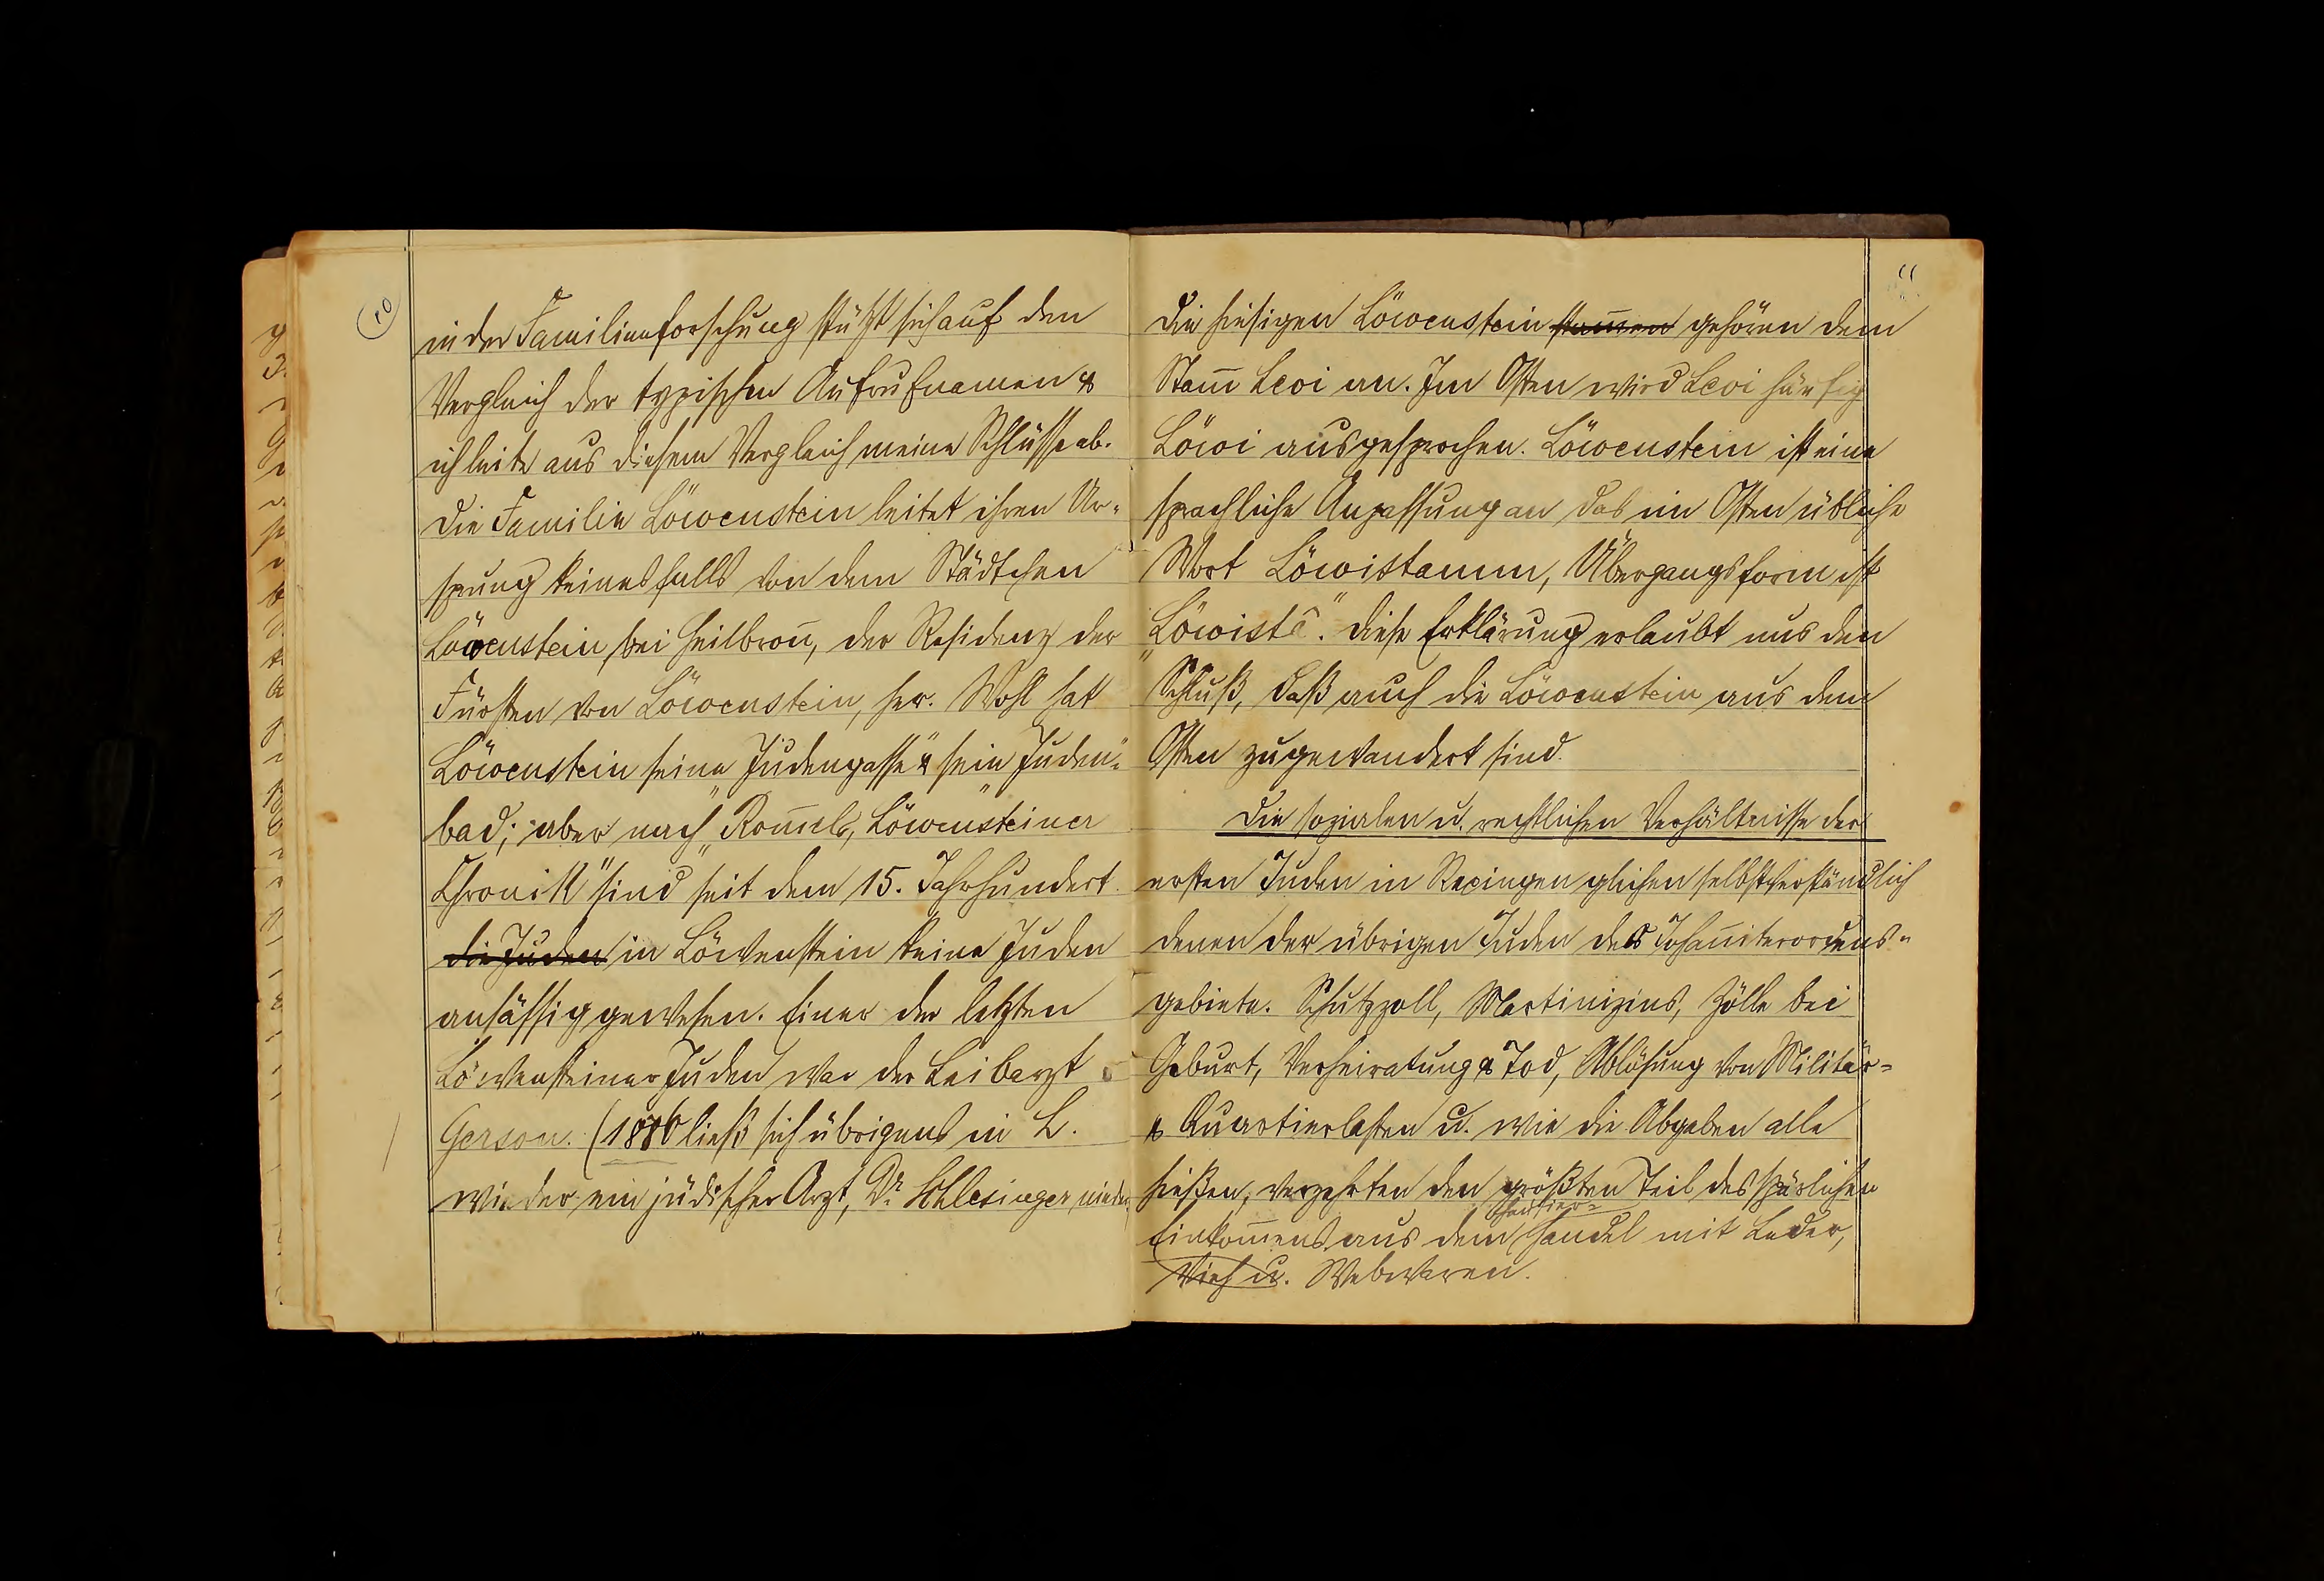 10
in der Familienforschung stützt sich auf den
Vergleich der typischen Aufrufnamen &
ich leite aus diesem Vergleich meine Schlüsse ab.
Die Familie Löwenstein leitet ihren Ur-
sprung keinesfalls von dem Städtchen
Löwenstein bei Heilbron̄, der Residenz der
Fürsten von Löwenstein, her. Wohl hat
Löwenstein seine „Judengasse" & sein „Juden-
bad"; aber nach „Rom̄els, Löwensteiner
Chronik" sind seit dem 15. Jahrhundert
die Juden in Löwenstein keine Juden
ansässig gewesen. Einer der letzten
Löwensteiner Juden war der Leibarzt
Gerson. (1886 ließ sich übrigens in L.
wieder ein jüdischer Arzt, Dr. Schlesinger nieder.
11
Die hiesigen Löwenstein stam̄en gehören dem
Stam̄ Levi an. Im Osten wird Levi häufig
Löwi ausgesprochen. Löwenstein ist eine
sprachliche Anpassung an das im Osten übliche
Wort Löwistamm, Übergangsform ist
„Löwistã". Diese Erklärung erlaubt uns den
Schluß, daß auch die Löwenstein aus dem
Osten zugewandert sind.
Die sozialen u. rechtlichen Verhältnisse der
ersten Juden in Rexingen glichen selbstverständlich
denen der übrigen Juden des Johan̄iterordens-
gebiete. Schutzzoll, Martinizins, Zölle bei
Geburt, Verheiratung & Tod, Ablösung von Militär-
& Quartierlasten u. wie die Abgaben alle
hießen, verzehrten den größten Teil des spärlichen
Hausier-
Einkom̄ens aus dem Handel mit Leder,
Vieh u. Webwaren.